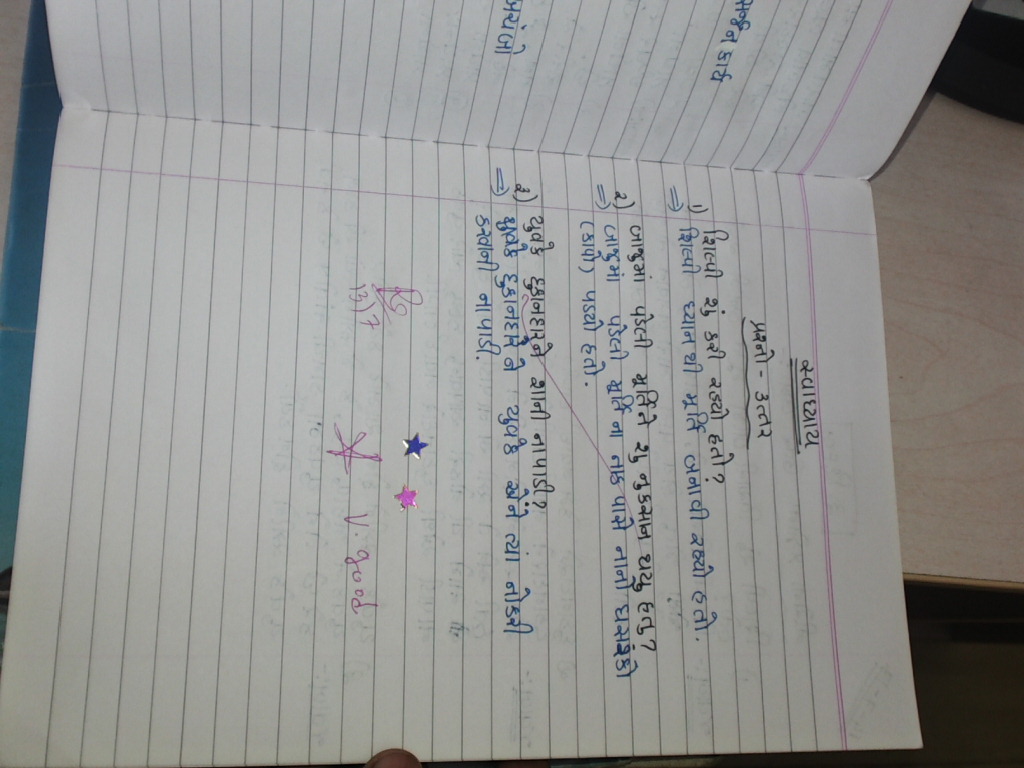 સ્વાધ્યાય
પ્રશ્નો - ઉત્તર
૧) શિલ્પી શું કરી રહ્યો હતો?
⇒ શિલ્પી ધ્યાન થી મૂર્તિ બનાવી રહ્યો હતો.
૨) બાજુમાં પડેલી મૂર્તિને શુ નુકસાન થયુ હતુ?
⇒ બાજુમાં પડેલી મૂર્તિ ના નાક પાસે નાનો ઘસરકો
(કાપો) પડ્યો હતો.
૩) યુવકે દુકાનદારને શાની ના પાડી?
⇒ યુવકે દુકાનદાર ને યુવકે એને ત્યાં નોકરી
કરવાની ના પાડી.
13/7
V. good